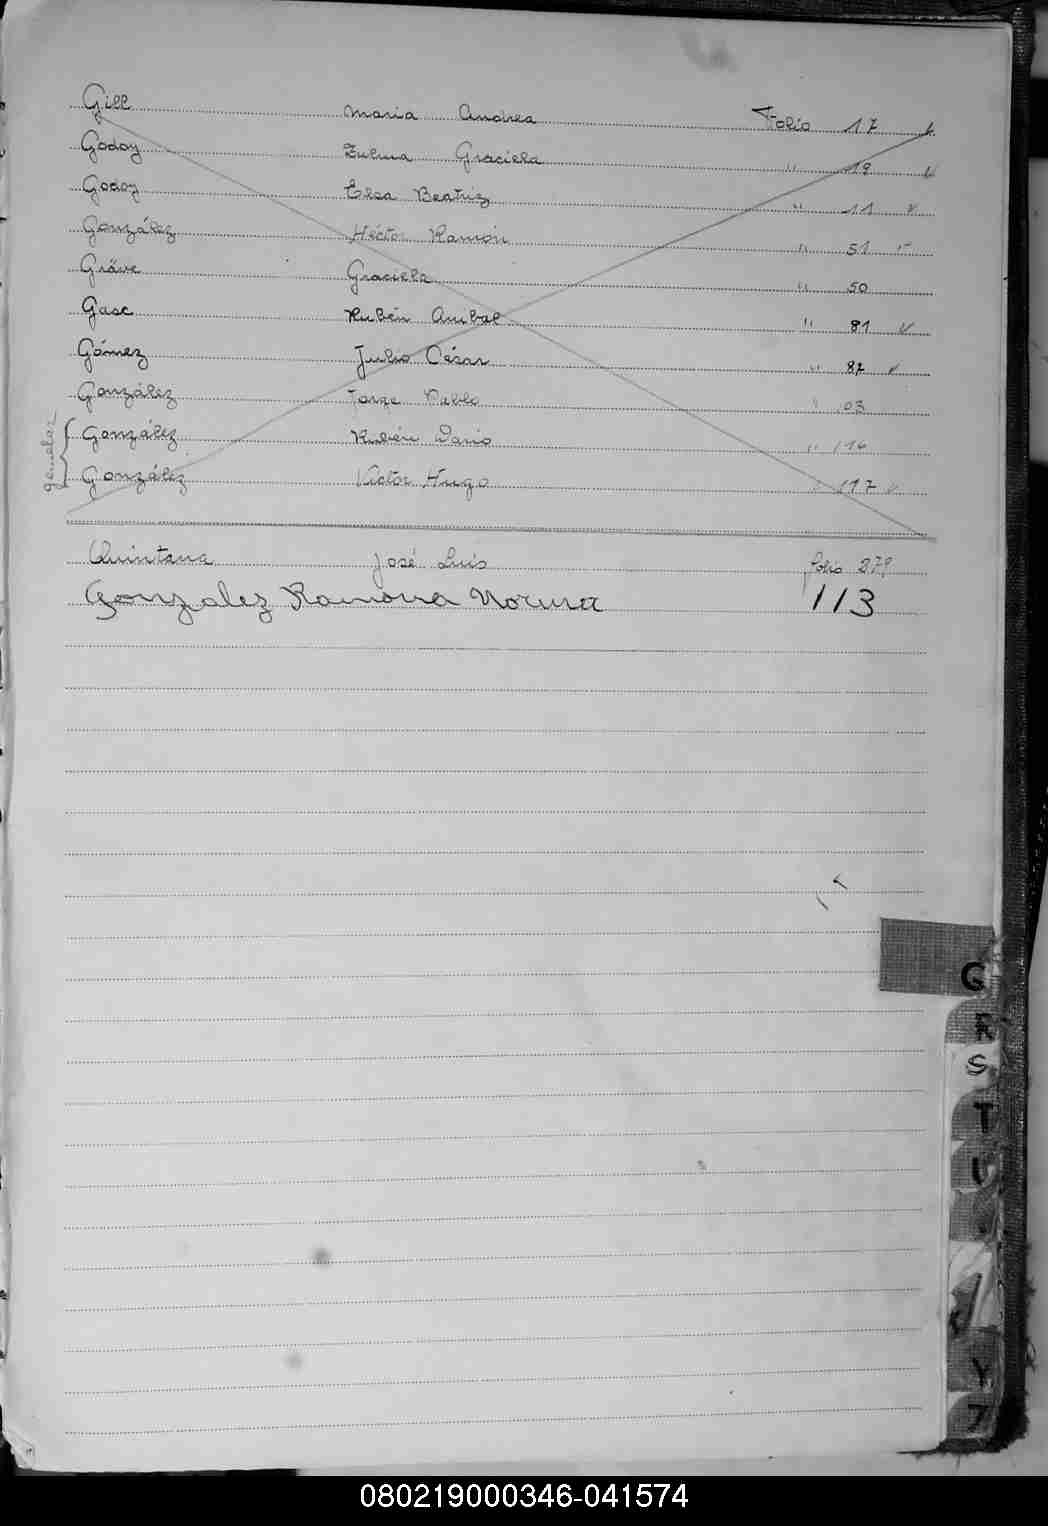 Gill Maria Andrea Folio 17
Godoy Zulma Graciela " 19
Godoy Elsa Beatriz " 11
González Héctor Ramón " 51
Gräve Graciela " 50
Gasc Rubén Anibal " 81
Gómez Julio César " 87
González Jorge Pablo " 03
González Rubén Dario " 116
González Victor Hugo " 117
gemelos
Quintana José Luis folio 279
Gonzalez Ramona Norma 113
G
R
S
T
U
Y
Z
080219000346-041574